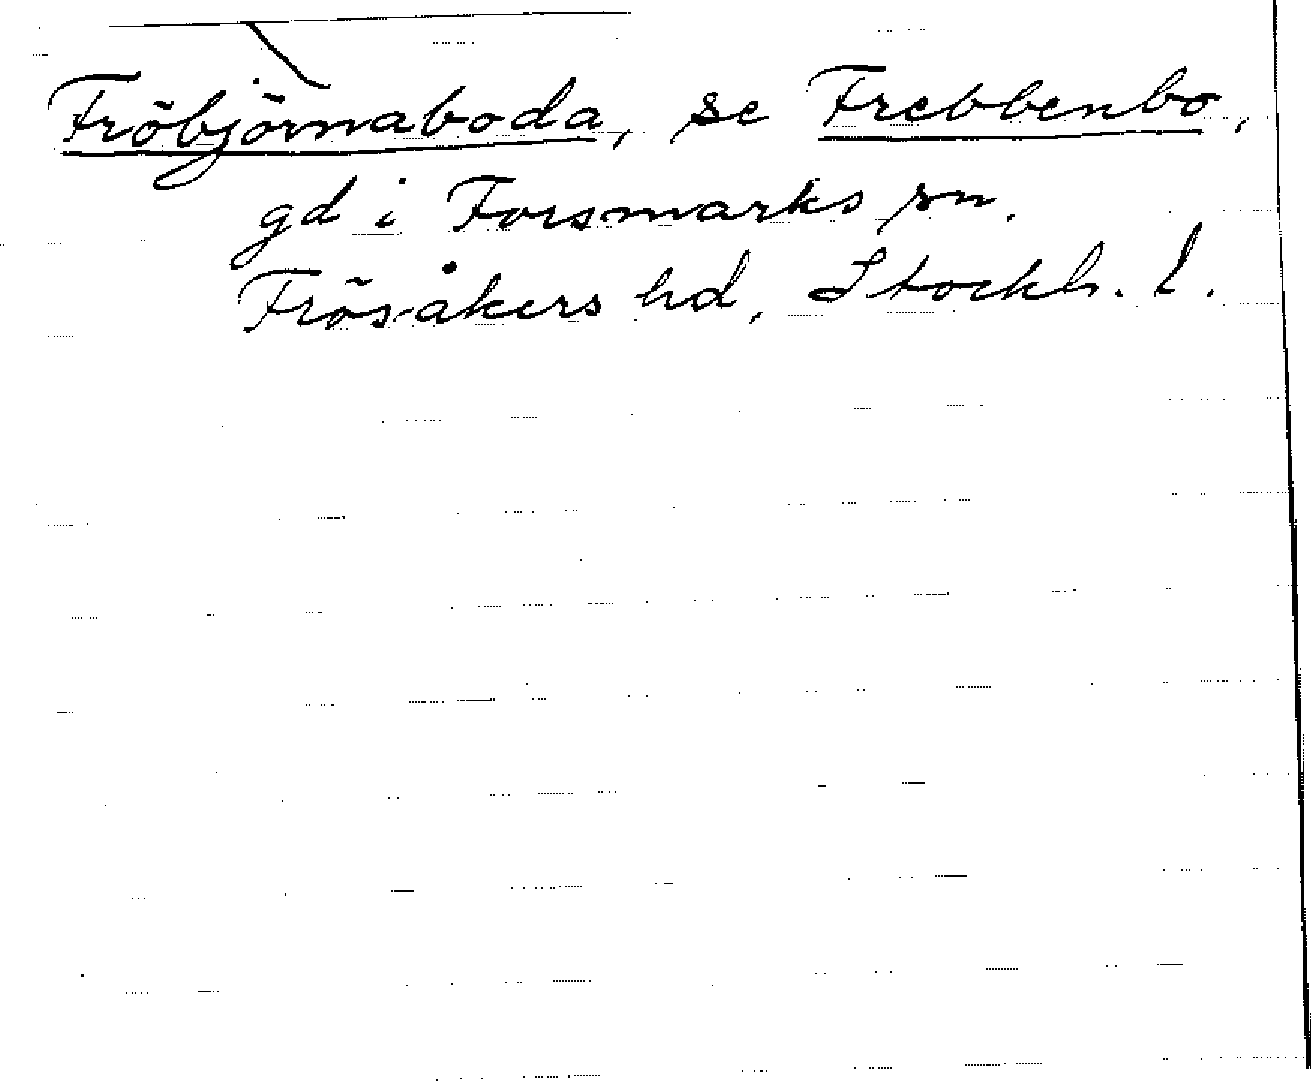 Fröbjörnaboda, se Frebbenbo,
gd i Forsmarks sn.
Frösåkers hd, Stockh. l.